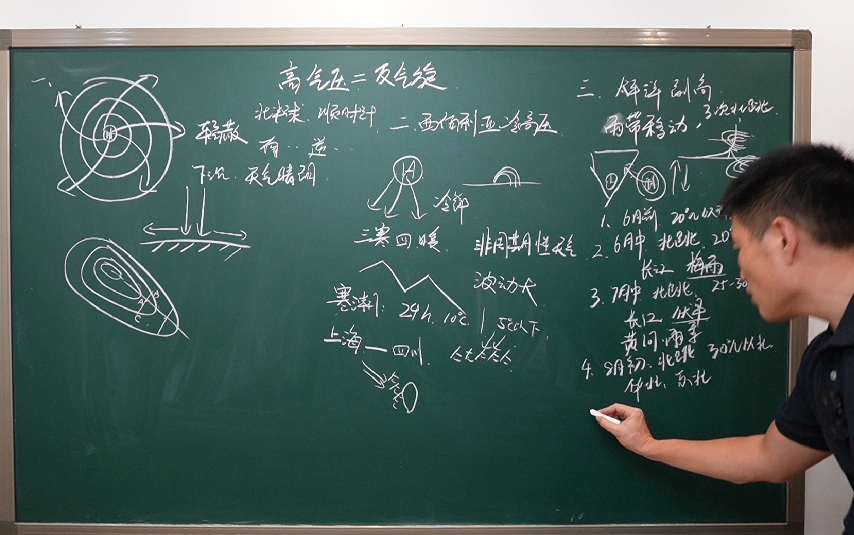 一、
高气压=反气旋
北半球：顺时针
辐散
南‥逆‥
下沉、天气晴朗
二、西伯利亚冷高压
H
冷锋
三寒四暖
非周期性天气
波动大
寒潮：24h、10℃
5℃以下
上海—四川
三、
副高
雨带移动，3次北跳
H
1、6月前 20°N以
2、6月中 北跳 20
长江 梅雨
3、7月中 北跳 25-30
长江 伏旱
黄河 雨季
4、8月初、北跳 30°N以北
华北、东北